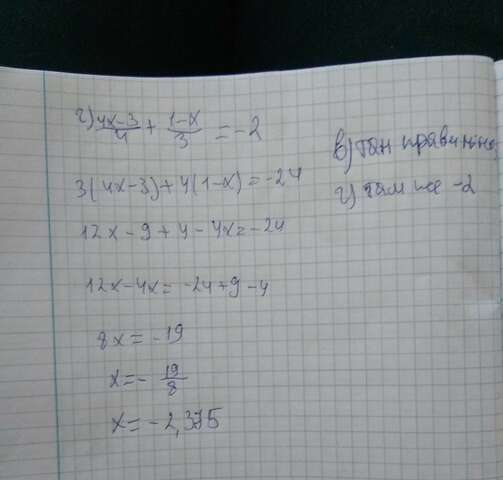 г) \frac{4x-3}{4} + \frac{1-x}{3} = -2
3(4x-3)+4(1-x)=-24
12x-9+4-4x=-24
12x-4x=-24+9-4
8x=-19
x=-\frac{19}{8}
x=-2,375
в) там правильно
г) там же -2